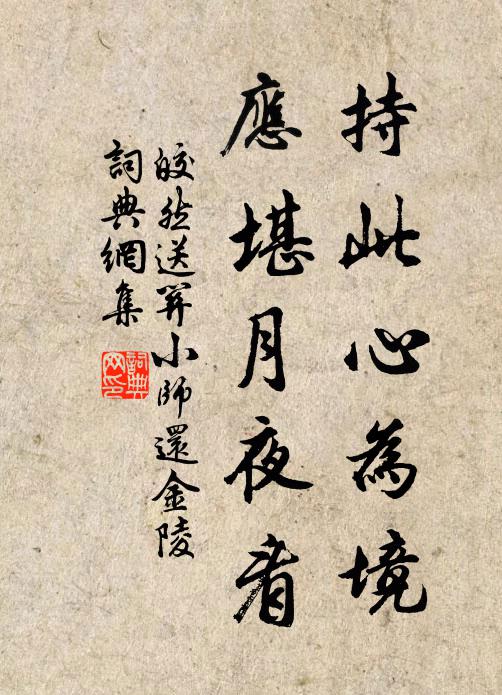 持此心為境
應堪月夜看
皎然送關小師還金陵
詞典網集
詞典网印